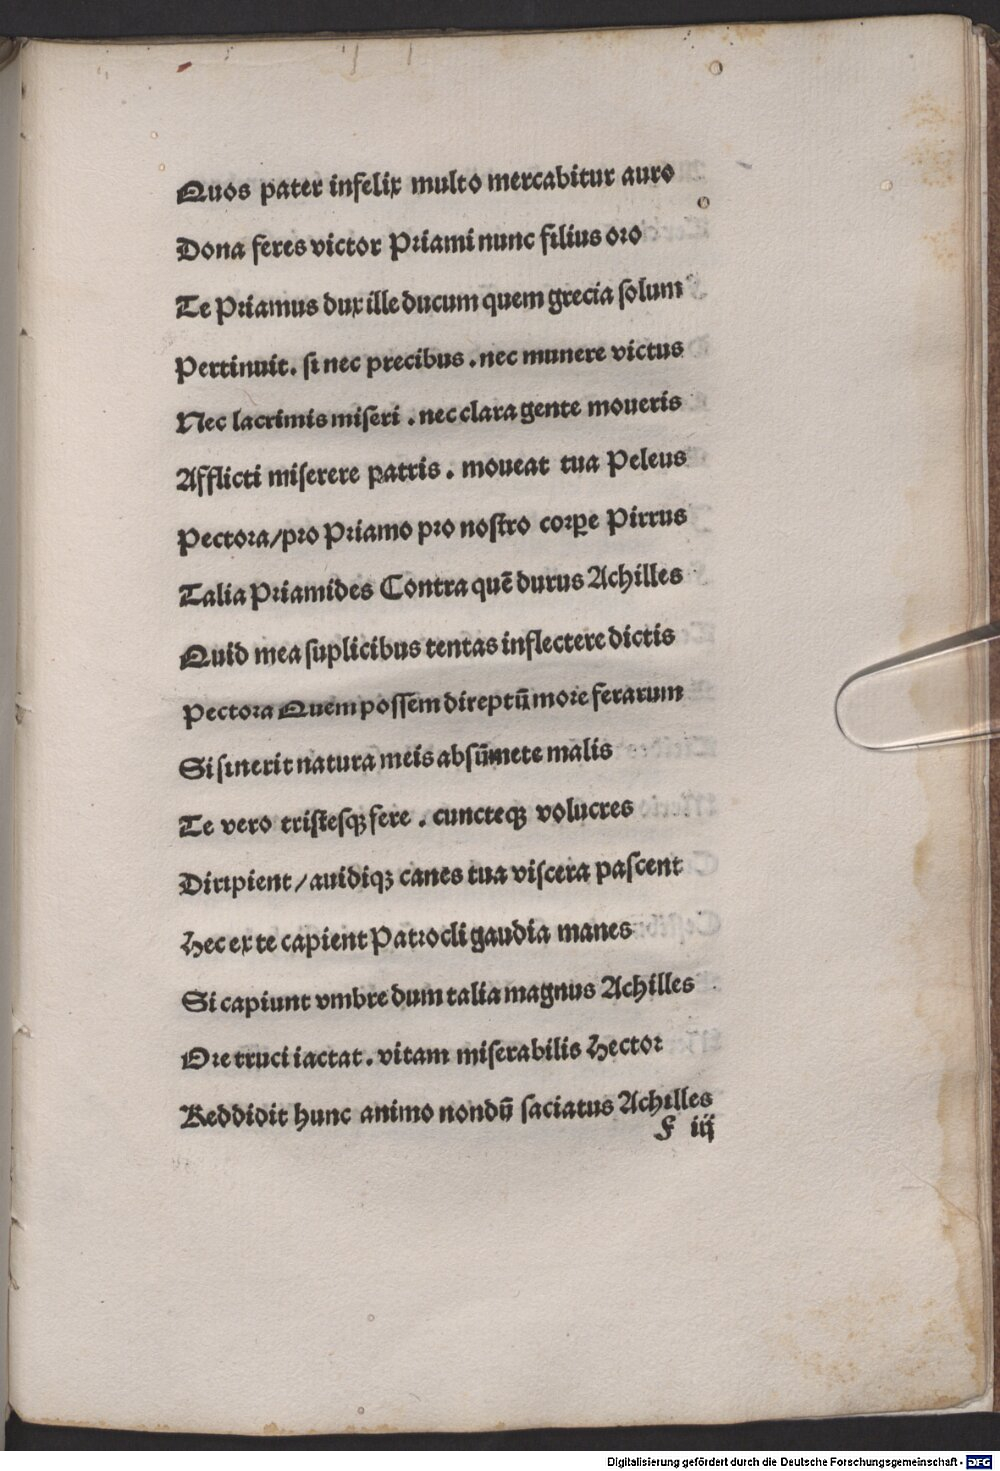 Quos pater infelix multo mercabitur auro
Dona feres victor Priami nunc filius oro
Te Priamus dux ille ducum quem grecia ſolum
Pertinuit. ſi nec precibus. nec munere victus
Nec lacrimis miſeri. nec clara gente moueris
Afflicti miſerere patris. moueat tua Peleus
Pectora/pro Priamo pro noſtro corꝑe Pirrus
Talia Priamides Contra quē durus Achilles
Quid mea ſuplicibus tentas inflectere dictis
Pectora Quem poſſem direptū more ferarum
Si ſinerit natura meis abſūmete malis
Te vero triſteſqꝫ fere. cuncteqꝫ volucres
Diripient/auidiqꝫ canes tua viſcera paſcent
Hec ex te capient Patrocli gaudia manes
Si capiunt vmbre dum talia magnus Achilles
Ore truci iactat. vitam miſerabilis Hector
Reddidit hunc animo nondū ſaciatus Achilles
F iij
Digitalisierung gefördert durch die Deutsche Forschungsgemeinschaft - DFG